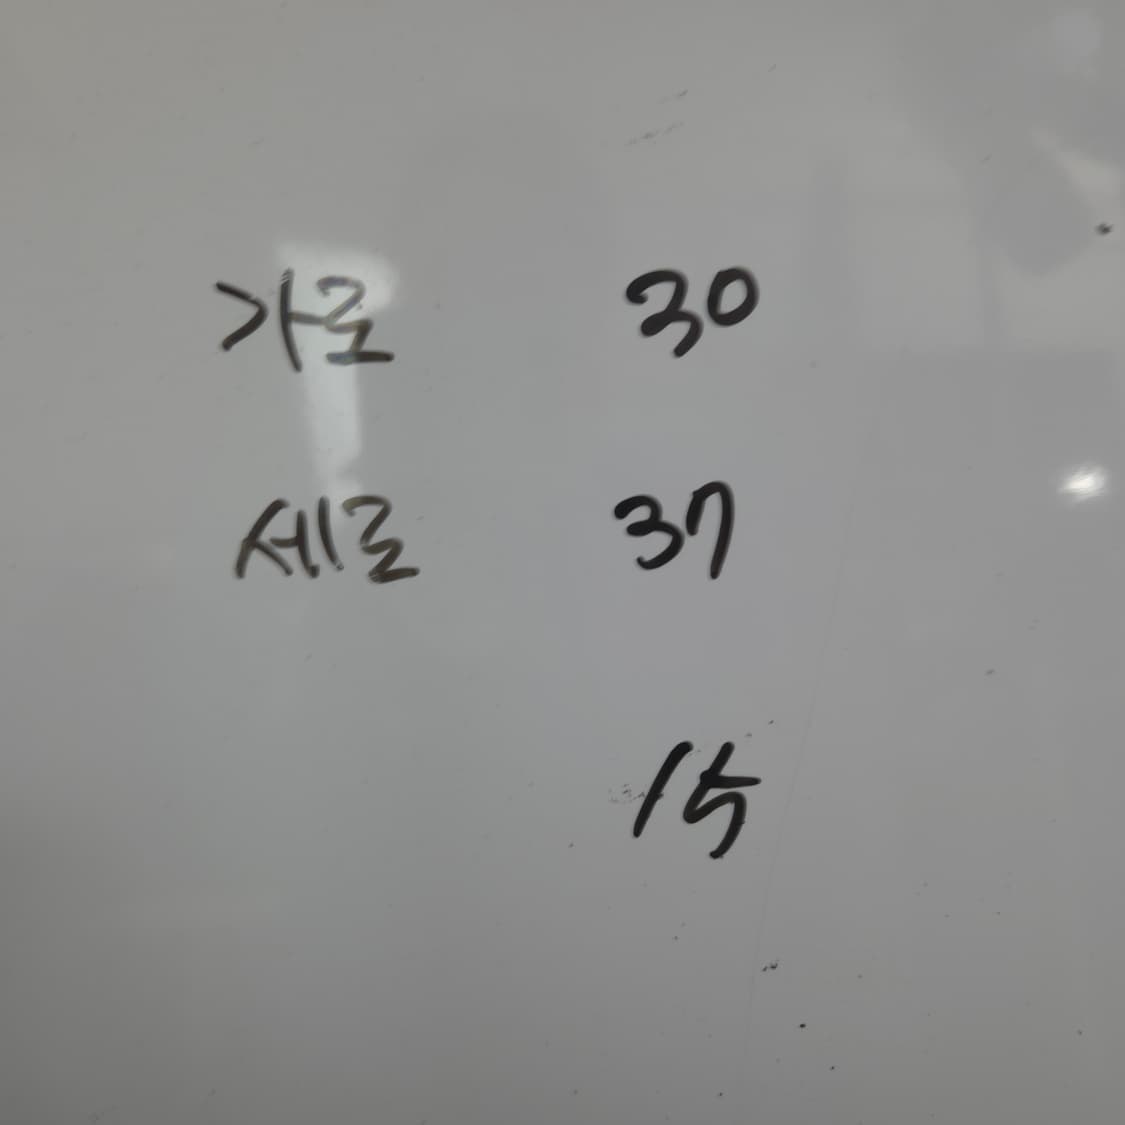 가로 30
세로 37
15